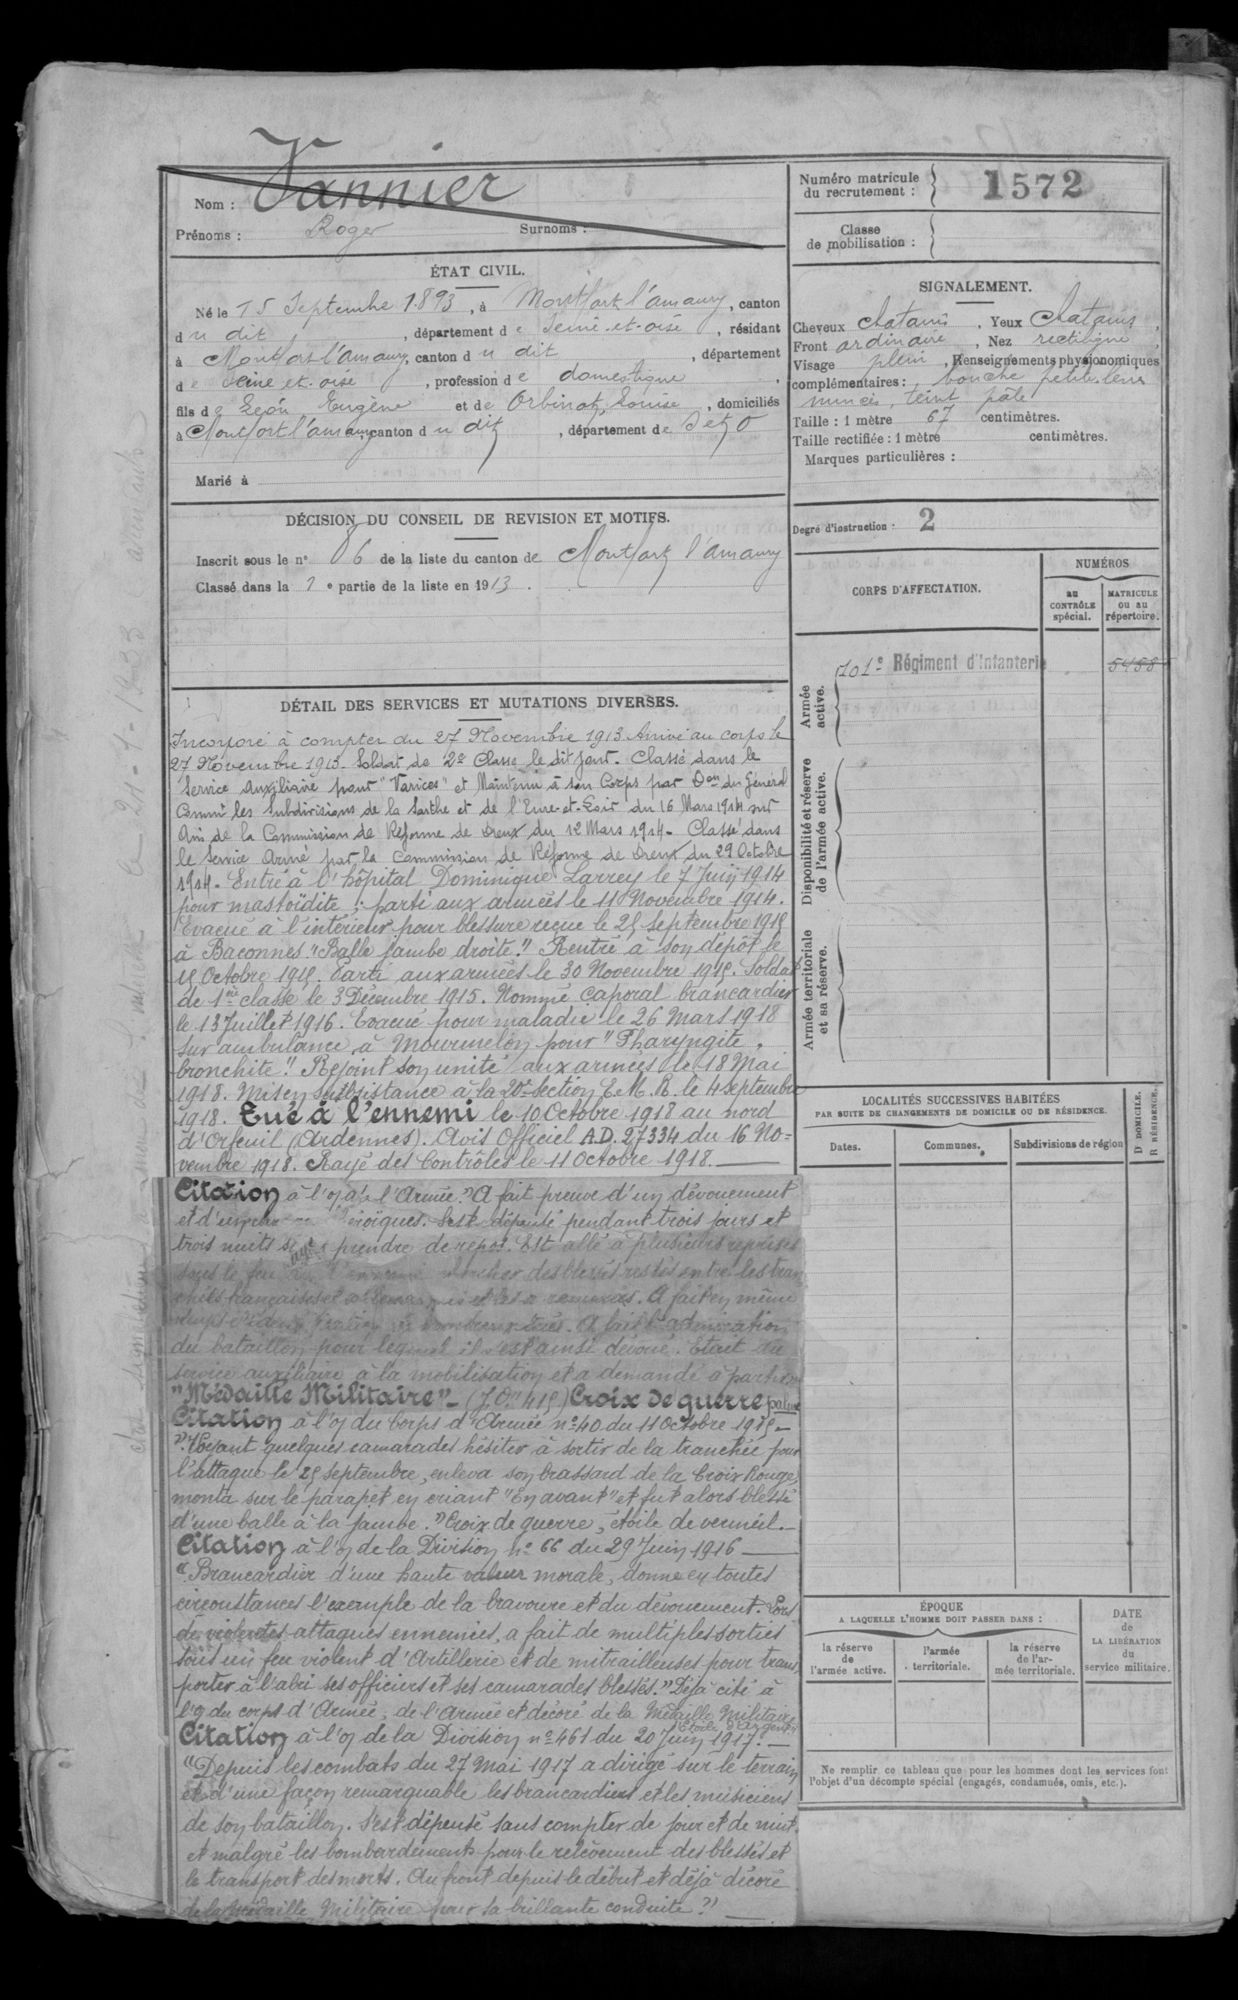 Nom : Vannier
Prénoms : Roger Surnoms :
ÉTAT CIVIL.
Né le 15 Septembre 1893, à Montfort l'amaury, canton
du dit, département de Seine-et-oise, résidant
à Montfort l'amaury, canton du dit, département
de Seine et-oise, profession de domestique,
fils de Léon Eugène et de Orbinot, Louise, domiciliés
à Montfort l'amaury, canton du dit, département de S et O
Marié à
DÉCISION DU CONSEIL DE REVISION ET MOTIFS.
Inscrit sous le n° 86 de la liste du canton de Montfort l'amaury
Classé dans la 1e partie de la liste en 1913.
DÉTAIL DES SERVICES ET MUTATIONS DIVERSES.
Incorporé à compter du 27 Novembre 1913. Arrivé au corps le
27 Novembre 1913. Soldat de 2e Classe le dit jour. Classé dans le
Service Auxiliaire pour "Varices" et Maintenu à son Corps par Don du Général
Commt les Subdivisions de la Sarthe et de l'Eure-et-Loir du 16 Mars 1914 sur
Avis de la Commission de Réforme de Dreux du 12 Mars 1914. Classé dans
le Service Armé par la Commission de Réforme de Dreux du 29 Octobre
1914. Entré à l'hôpital Dominique Larrey le 7 Juin 1914
pour mastoïdite ; parti aux armées le 11 Novembre 1914.
Evacué à l'intérieur pour blessure reçue le 25 septembre 1915
à Baconnes "Balle jambe droite". Rentré à son dépôt le
15 Octobre 1915. Parti aux armées le 30 Novembre 1915. Soldat
de 1ère classe le 3 Décembre 1915. Nommé Caporal brancardier
le 13 Juillet 1916. Evacué pour maladie le 26 Mars 1918
sur ambulance à Mourmelon pour "Pharyngite,
bronchite". Rejoint son unité aux armées le 18 Mai
1918. Mis en subsistance à la 20e section E.M.R. le 4 septembre
1918. Tué à l'ennemi le 10 Octobre 1918 au nord
d'Orfeuil (Ardennes). Avis Officiel A.D. 27334 du 16 No=
vembre 1918. Rayé des Contrôles le 11 Octobre 1918.
Citation à l'o/ de l'Armée. "A fait preuve d'un dévouement
et d'un héroïques. S'est dépensé pendant trois jours et
trois nuits sans prendre de repos. Est allé à plusieurs reprises
sous le feu de l'ennemi chercher des blessés restés entre les tran
chées françaises et allemandes et les a ramenés. A fait en même
temps tués. A fait l'admiration
du bataillon pour lequel il s'est ainsi dévoué. Etait du
service auxiliaire à la mobilisation et a demandé à partir."
"Médaille Militaire" - (J.O. 415) Croix de guerre palme
Citation à l'o/ du Corps d'Armée n° 40 du 11 Octobre 1915 -
"Voyant quelques camarades hésiter à sortir de la tranchée pour
l'attaque le 25 septembre, enleva son brassard de la Croix Rouge,
monta sur le parapet en criant "En avant" et fut alors blessé
d'une balle à la jambe." Croix de guerre, étoile de vermeil. -
Citation à l'o/ de la Division n° 66 du 29 Juin 1916
"Brancardier d'une haute valeur morale, donne en toutes
circonstances l'exemple de la bravoure et du dévouement. Lors
de violentes attaques ennemies, a fait de multiples sorties
sous un feu violent d'Artillerie et de mitrailleuses pour trans
porter à l'abri ses officiers et ses camarades blessés." Déjà cité à
l'o/ du corps d'Armée, de l'Armée et décoré de la Médaille Militaire
Etoile d'Argent
Citation à l'o/ de la Division n° 461 du 20 Juin 1917. -
"Depuis les combats du 27 Mai 1917 a dirigé sur le terrain
et d'une façon remarquable les brancardiers et les musiciens
de son bataillon. S'est dépensé sans compter de jour et de nuit
et malgré les bombardements pour le relèvement des blessés et
le transport des morts. Au front depuis le début et déjà décoré
de la Médaille Militaire pour sa brillante conduite"
Numéro matricule
du recrutement : 1572
Classe
de mobilisation :
SIGNALEMENT.
Cheveux chatains, Yeux chatains,
Front ordinaire, Nez rectiligne,
Visage plein, Renseignements physionomiques
complémentaires : bouche petite, lèvres
minces, teint pâle
Taille : 1 mètre 67 centimètres.
Taille rectifiée : 1 mètre centimètres.
Marques particulières :
Degré d'instruction : 2
CORPS D'AFFECTATION.
NUMÉROS
au CONTRÔLE spécial.
MATRICULE ou au répertoire.
Armée active.
101e Régiment d'Infanterie 5458
Disponibilité et réserve de l'armée active.
Armée territoriale et sa réserve.
LOCALITÉS SUCCESSIVES HABITÉES
PAR SUITE DE CHANGEMENTS DE DOMICILE OU DE RÉSIDENCE.
Dates. Communes. Subdivisions de région
D DOMICILE.
R RÉSIDENCE.
ÉPOQUE
A LAQUELLE L'HOMME DOIT PASSER DANS :
la réserve de l'armée active.
l'armée territoriale.
la réserve de l'armée territoriale.
DATE
de
LA LIBÉRATION
du
service militaire.
Ne remplir ce tableau que pour les hommes dont les services font
l'objet d'un décompte spécial (engagés, condamnés, omis, etc.).